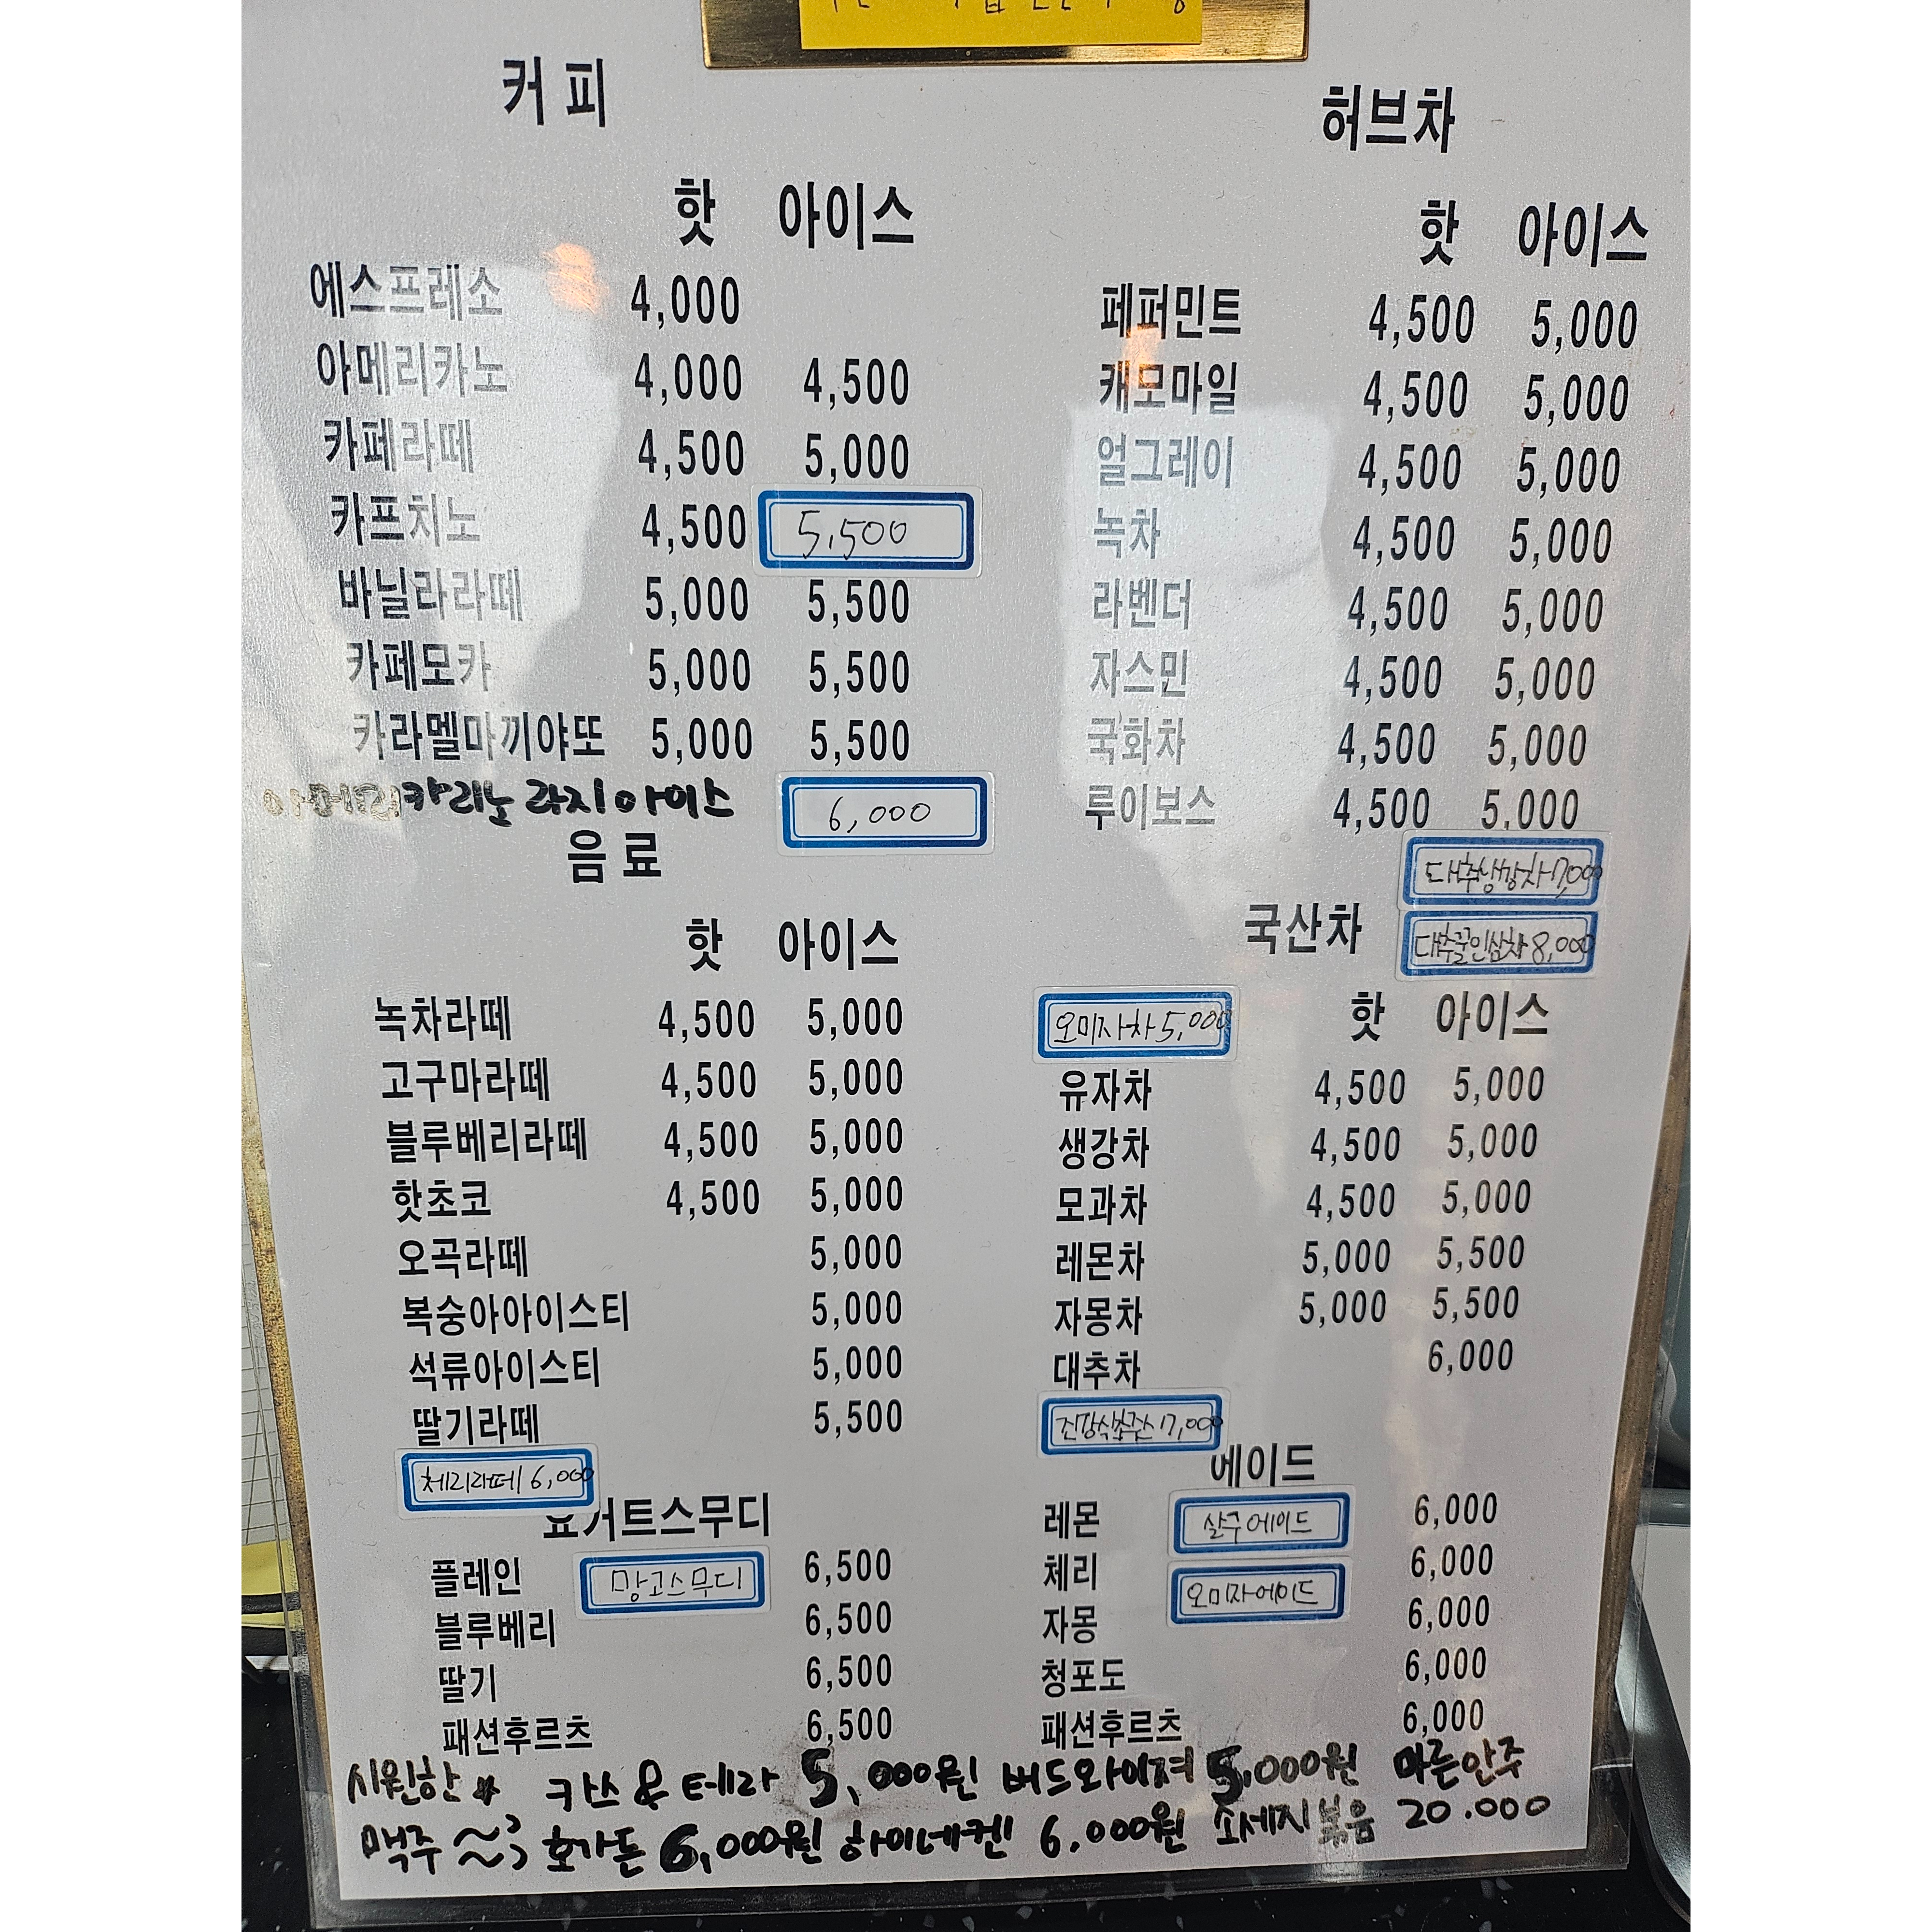 커피
핫 아이스
에스프레소 4,000
아메리카노 4,000 4,500
카페라떼 4,500 5,000
카프치노 4,500 5,500
바닐라라떼 5,000 5,500
카페모카 5,000 5,500
카라멜마끼야또 5,000 5,500
라지아이스 6,000
음료
핫 아이스
녹차라떼 4,500 5,000
고구마라떼 4,500 5,000
블루베리라떼 4,500 5,000
핫초코 4,500 5,000
오곡라떼 5,000
복숭아아이스티 5,000
석류아이스티 5,000
딸기라떼 5,500
체리라떼 6,000
요거트스무디
플레인 망고스무디 6,500
블루베리 6,500
딸기 6,500
패션후르츠 6,500
허브차
핫 아이스
페퍼민트 4,500 5,000
캐모마일 4,500 5,000
얼그레이 4,500 5,000
녹차 4,500 5,000
라벤더 4,500 5,000
자스민 4,500 5,000
국화차 4,500 5,000
루이보스 4,500 5,000
대추생강차 7,000
국산차 대추꿀인삼차 8,000
오미자차 5,000 핫 아이스
유자차 4,500 5,000
생강차 4,500 5,000
모과차 4,500 5,000
레몬차 5,000 5,500
자몽차 5,000 5,500
대추차 6,000
7,000
에이드
레몬 살구에이드 6,000
체리 오미자에이드 6,000
자몽 6,000
청포도 6,000
패션후르츠 6,000
시원한 카스 & 테라 5,000원 버드와이져 5,000원 마른안주
맥주 ~~ 호가든 6,000원 하이네켄 6,000원 소세지볶음 20.000